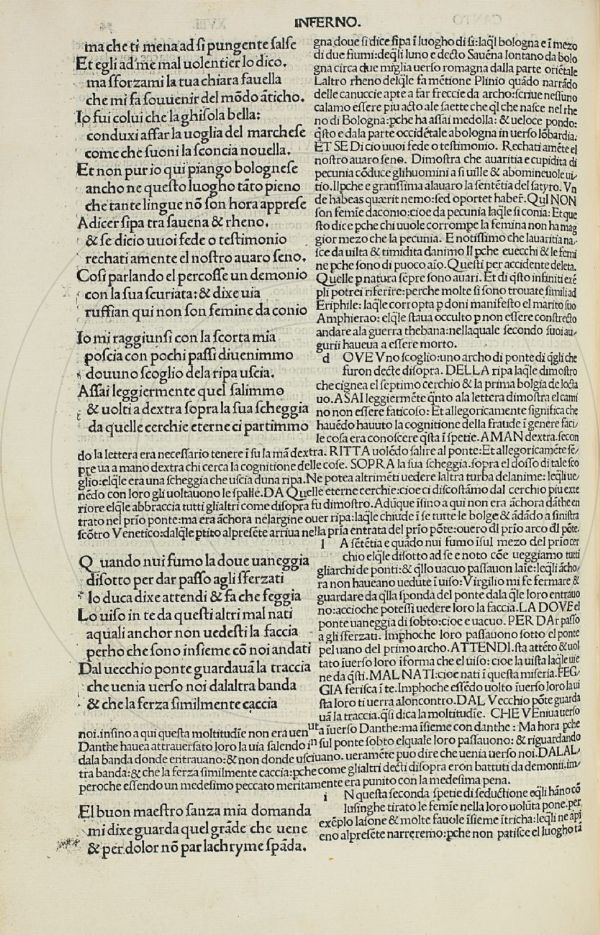 INFERNO.
ma che ti mena ad si pungente salse
Et egli ad me mal uolentier lo dico.
ma sforzami la tua chiara fauella
che mi fa souuenir del mōdo āticho.
Io fui colui che la ghisola bella:
conduxi affar la uoglia del marchese
come che suoni la sconcia nouella.
Et non pur io qui piango bolognese
ancho ne questo luogho tāto pieno
che tante lingue nō son hora apprese
A dicer sipa tra sauena & rheno.
& se dicio uuoi fede o testimonio
rechati amente el nostro auaro seno.
Cosi parlando el percosse un demonio
con la sua scuriata: & dixe uia
ruffian qui non son femine da conio
Io mi raggiunsi con la scorta mia
poscia con pochi passi diuenimmo
douuno scoglio dela ripa uscia.
Assai leggiermente quel salimmo
& uolti a dextra sopra la sua scheggia
da quelle cerchie eterne ci partimmo
gna doue si dice sipa ī luogho di si: laq̄l bologna e ī mezo
di due fiumi: deq̄li luno e decto Sauēna lontano da bolo
gna circa due miglia uerso romagna dalla parte oriētale
Laltro rheno delq̄le fa mētione Plinio quādo narrādo
delle canuccie apte a far freccie da archo: scriue nessūno
calamo essere piu acto ale saette che q̄l che nasce nel rhe
no di Bologna: pche ha assai medolla: & ueloce pondo:
q̄sto e da la parte occidētale abologna in uerso lōbardia.
ET SE Di cio uuoi fede o testimonio. Rechati amēte el
nostro auaro seno. Dimostra che auaritia e cupidita di
pecunia cōduce glhuomini a si uille & abomineuole ui-
tio. Il pche e gratissima alauaro la sentētia del satyro. Vn
de habeas quærit nemo: sed oportet haber̄. Qui NON
son femīe daconio: cioe da pecunia laq̄le si conia: Et que
sto dice p che chi uuole corrompe la femina non ha mag
gior mezo che la pecunia. E notissimo che lauaritia na-
sce da uilta & timidita danimo Il pche euecchi & le femi
ne pche sono di puoco aīo. Questi per accidente deleta.
Quelle p natura sēpre sono auari. Et di q̄sto infiniti exē
pli potrei riferire: perche molte si sono trouate simili ad
Eriphile: laq̄le corropta p doni manifesto el marito suo
Amphierao: elq̄le staua occulto p non essere constrecto
andare ala guerra thebana: nellaquale secondo suoi au-
gurii haueua a essere morto.
d OVE Vno scoglio: uno archo di ponte di q̄gli che
furon decte disopra. DELLA ripa laq̄le dimostro
che cignea el septimo cerchio & la prima bolgia de locta
uo. ASAI leggiermēte q̄nto ala lettera dimostra el cami
no non essere faticoso: Et allegoricamente significa che
hauēdo hauuto la cognitione della fraude ī genere faci-
le cosa era conoscere q̄sta ī spetie. A MAN dextra. secon
do la lettera era necessario tenere ī su la mā dextra. RITTA uolēdo salire al ponte: Et allegoricamēte sē-
pre ua a mano dextra chi cerca la cognitione delle cose. SOPRA la sua scheggia. sopra el dosso di tale sco
glio: elq̄le era una scheggia che uscia duna ripa. Ne potea altrimēti uedere laltra turba delanime: leq̄li ue-
nēdo con loro gli uoltauono le spalle. DA Quelle eterne cerchie: cioe ci discostāmo dal cerchio piu exte
riore elq̄le abbraccia tutti glialtri come disopra fu dimostro. Adūque īsino a qui non era āchora dāthe en
trato nel p̄rio pōte: ma era āchora ne largine ouer ripa: laq̄le chiude ī se tutte le bolge & ādādo a sinistra
scōtro Venetico: dalq̄le ptito al p̄sēte arriua nella p̄ria entrata del p̄rio pōte: ouero di p̄rio arco di pōte.
Quando nui fumo la doue uaneggia
disotto per dar passo agli sferzati
lo duca dixe attendi & fa che feggia
Lo uiso in te da questi altri mal nati
aquali anchor non uedesti la faccia
perho che sono insieme cō noi andati
Dal uecchio ponte guardauā la traccia
che uenia uerso noi dalaltra banda
& che la ferza similmente caccia
l A sētētia e quado nui fumo īsul mezo del p̄rio cer
chio elq̄le disotto ad se e noto cōe ueggiamo tutti
gli archi de ponti: & q̄llo uacuo passauon laīe: leq̄li ācho
ra non haueano uedute ī uiso: Virgilio mi fe fermare &
guardare da q̄lla sponda del ponte dala q̄le loro entrauo
no: accioche potessi uedere loro la faccia. LA DOVE el
ponte uaneggia di sobto: cioe e uacuo. PER DAr passo
a gli sferzati. Imphoche loro passauono sotto el ponte
pel uano del primo archo. ATTENDI. sta attēto & uol
tato īuerso loro īforma che el uiso: cioe la uista laq̄le uie
ne da q̄sti. MAL NATI: cioe nati ī questa miseria. FEG
GIA ferisca ī te. Imphoche essēdo uolto īuerso loro la ui
sta loro ti uerra aloncontro. DAL Vecchio pōte guarda
uā la traccia. q̄si dica la moltitudīe. CHE VEniua uerso
noi. insino a qui questa moltitudīe non era uenuta īuerso Danthe: ma īsieme con danthe: Ma hora pche
Danthe hauea attrauersato loro la uia salendo īn sul ponte sobto elquale loro passauono: & riguardando
dala banda donde entrauano: & non donde usciuano. ueramēte puo dire che uenia uerso noi. DALAL
tra banda: & che la ferza similmente caccia: pche come glialtri decti disopra eron battuti da demonii: im-
peroche essendo un medesimo peccato meritamente era punito con la medesima pena.
El buon maestro sanza mia domanda
mi dixe guarda quel grāde che uene
& per dolor nō par lachryme spāda.
i N questa seconda spetie di seductione eq̄li hāno cō
lusinghe tirato le femīe nella loro uolūta pone. per
exēplo Iasone & molte fauole īsieme ītricha: leq̄li ne api
eno al p̄sēte narreremo: pche non patisce el luogho tā